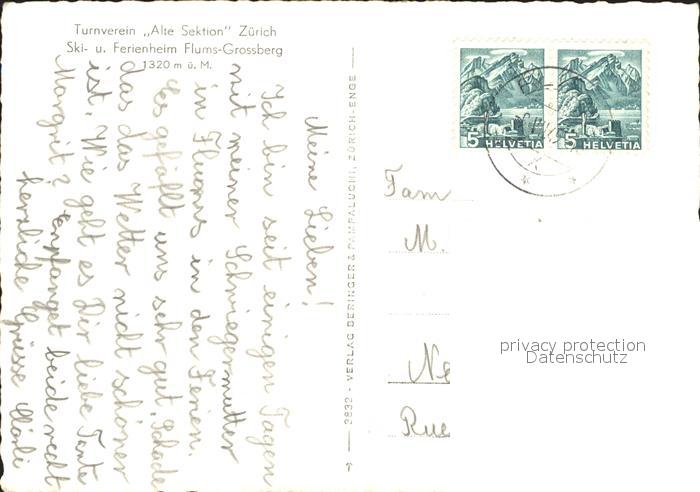 Turnverein „Alte Sektion" Zürich
Ski- u. Ferienheim Flums-Grossberg
1320 m ü. M.
Meine Lieben!
Ich bin seit einigen Tagen
mit meiner Schwiegermutter
in Flums in den Ferien.
Es gefällt uns sehr gut. Schade
das das Wetter nicht schöner
ist. Wie geht es Dir liebe Tante
Margrit? Empfanget beide recht
herzliche Grüsse
2832 - VERLAG BERINGER & PAMPALUCHI, ZÜRICH-ENGE
5 HELVETIA
5 HELVETIA
Fam
M.
Ne
Rue
privacy protection
Datenschutz